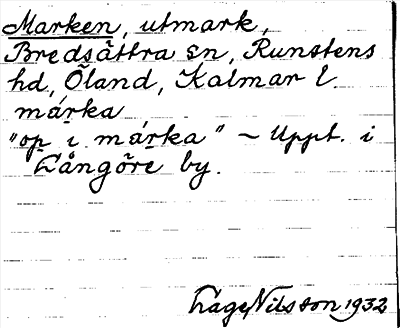 Marken, utmark,
Bredsättra sn, Runstens
hd, Öland, Kalmar l.
márka
"op i márka" ~ Uppt. i
Långöre by.
Åage Nilsson 1932